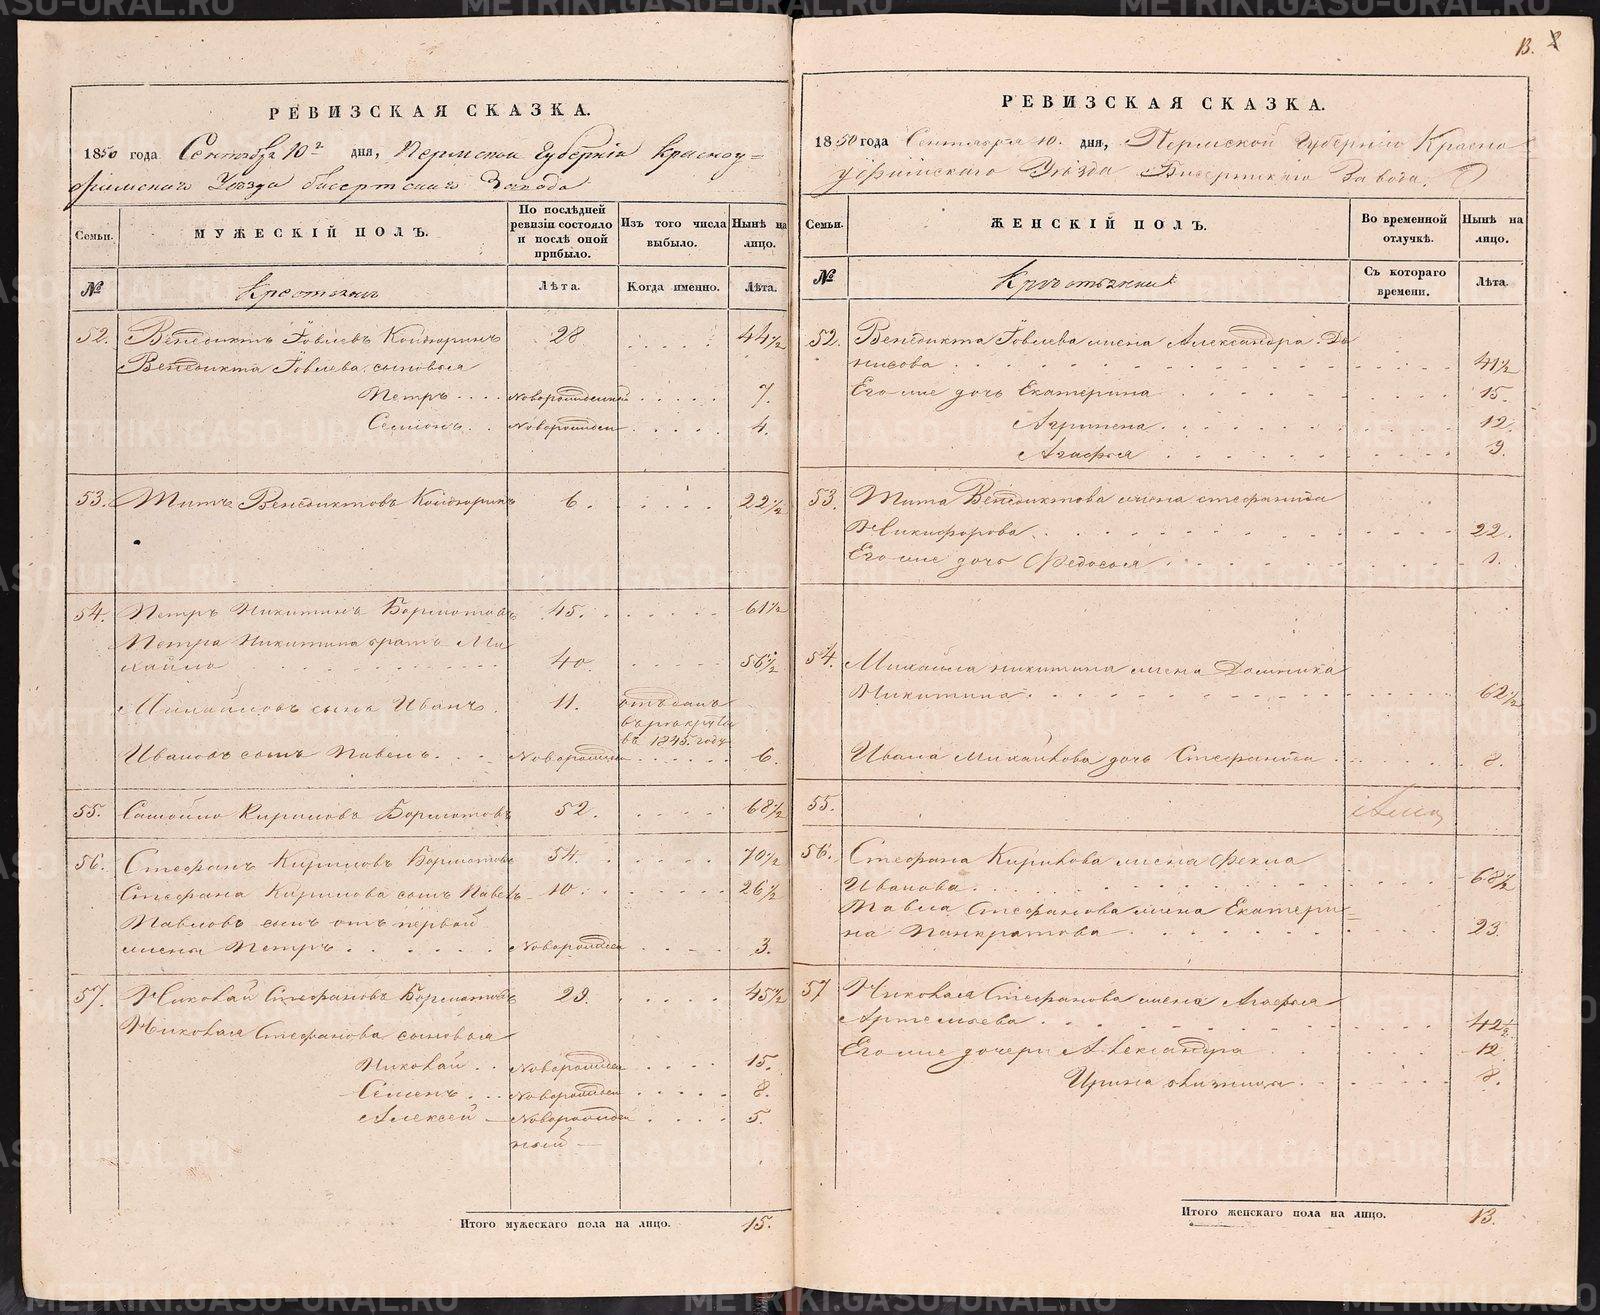 13.
РЕВИЗСКАЯ СКАЗКА.
1850 года Сентября 10го дня, Пермской Губернiи Красноу=
фимскаго Уѣзда Бисертскаго Завода
Семьи.
МУЖЕСКIЙ ПОЛЪ.
По послѣдней ревизiи состояло и послѣ оной прибыло.
Изъ того числа выбыло.
Нынѣ на лицо.
№
Крестьяне
Лѣта.
Когда именно.
Лѣта.
52. Венедиктъ Iовлевъ 28 44½
Венедикта Iовлева сыновья
Петръ Новорожденный 7.
Семенъ Новорожден 4.
53. Титъ Венедиктовъ 6. 22½
54. Петръ Никитинъ Бормотовъ 45. 61½
Петра Никитина братъ Ми
хайло 40 56½
Михайловъ сынъ Иванъ 11. отданъ
въ рекруты
въ 1845 году
Ивановъ сынъ Павелъ Новорожден 6.
55. Самойло Кириловъ Бормотовъ 52. 68½
56. Стефанъ Кириловъ Бормотовъ 54. 70½
Стефана Кирилова сынъ Павелъ 10. 26½
Павловъ сынъ отъ первой
жены Петръ Новорожден 3.
57. Николай Стефановъ Бормотовъ 29. 45½
Николая Стефанова сыновья
Николай Новорожден 15.
Семенъ Новорожден 8.
Алексей Новорожден 5.
ный
Итого мужескаго пола на лицо. 15.
РЕВИЗСКАЯ СКАЗКА.
1850 года Сентября 10. дня, Пермской Губернiи Красно
уфимскаго Уѣзда Бисертскаго Завода.
Семьи.
ЖЕНСКIЙ ПОЛЪ.
Во временной отлучкѣ.
Нынѣ на лицо.
№
Крестьянки
Съ котораго времени.
Лѣта.
52. Венедикта Iовлева жена Александра Де
нисова 41½
Его же дочь Екатерина 15.
Агрипена 12.
Агафья 9.
53. Тита Венедиктова жена Стефанида
Никифорова 22.
Его же дочь Федосья 1.
54. Михайла Никитина жена Домника
Никитина 62½
Ивана Михайлова дочь Стефанида 8.
55.
56. Стефана Кирилова жена Фекла
Иванова 68½
Павла Стефанова жена Екатери=
на Панкратова 23.
57 Николая Стефанова жена Агафья
Артемьева 42½
Его же дочери Александра 12
Ирина 8.
Итого женскаго пола на лицо. 13.
METRIKI.GASO-URAL.RU